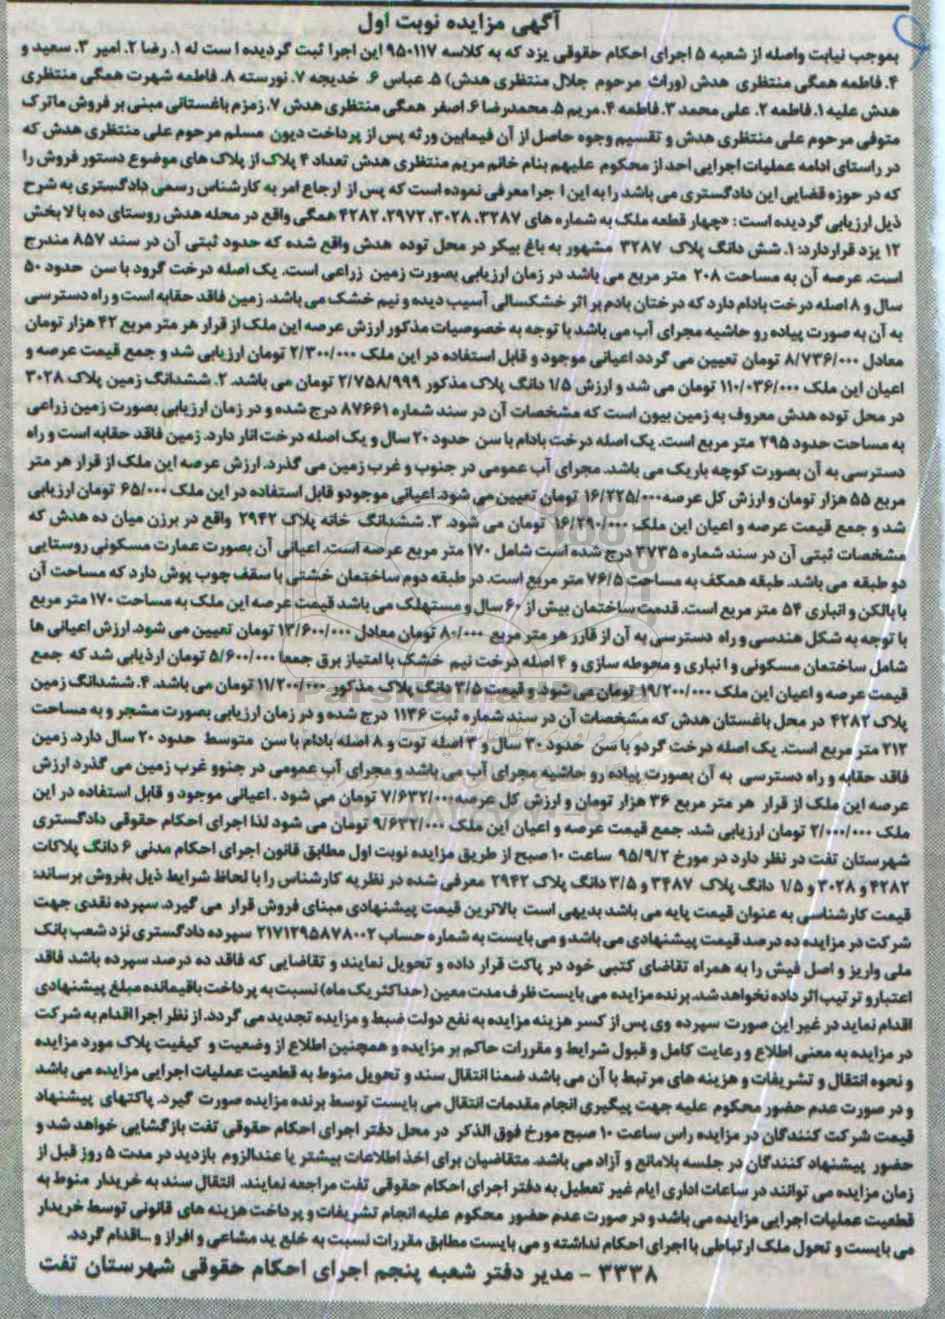 آگهی مزایده نوبت اول
بموجب نیابت واصله از شعبه ۵ اجرای احکام حقوقی یزد که به کلاسه ۹۵۰۱۱۷ این اجرا ثبت گردیده است له ۱. رضا ۲. امیر ۳. سعید و
۴. فاطمه همگی منتظری هدش (وراث مرحوم جلال منتظری هدش) ۵. عباس ۶. خدیجه ۷. نورسته ۸. فاطمه شهرت همگی منتظری
هدش علیه ۱. فاطمه ۲. علی محمد ۳. فاطمه ۴. مریم ۵. محمدرضا ۶. اصغر همگی منتظری هدش ۷. زمزم باغستانی مبنی بر فروش ماترک
متوفی مرحوم علی منتظری هدش و تقسیم وجوه حاصل از آن فیمابین ورثه پس از پرداخت دیون مسلم مرحوم علی منتظری هدش که
در راستای ادامه عملیات اجرایی احد از محکوم علیهم بنام خانم مریم منتظری هدش تعداد ۴ پلاک از پلاک های موضوع دستور فروش را
که در حوزه قضایی این دادگستری می باشد را به این ا جرا معرفی نموده است که پس از ارجاع امر به کارشناس رسمی دادگستری به شرح
ذیل ارزیابی گردیده است: «چهار قطعه ملک به شماره های ۳۲۸۷، ۳۰۲۸، ۲۹۷۲، ۴۲۸۲ همگی واقع در محله هدش روستای ده با لا بخش
۱۲ یزد قرار دارد: ۱. شش دانگ پلاک ۳۲۸۷ مشهور به باغ بیکر در محل توده هدش واقع شده که حدود ثبتی آن در سند ۸۵۷ مندرج
است. عرصه آن به مساحت ۲۰۸ متر مربع می باشد در زمان ارزیابی بصورت زمین زراعی است. یک اصله درخت گرود با سن حدود ۵۰
سال و ۸ اصله درخت بادام دارد که درختان بادم بر اثر خشکسالی آسیب دیده و نیم خشک می باشد. زمین فاقد حقابه است و راه دسترسی
به آن به صورت پیاده رو حاشیه مجرای آب می باشد با توجه به خصوصیات مذکور ارزش عرصه این ملک از قرار هر متر مربع ۴۲ هزار تومان
معادل ۸/۷۳۶/۰۰۰ تومان تعیین می گردد اعیانی موجود و قابل استفاده در این ملک ۲/۳۰۰/۰۰۰ تومان ارزیابی شد و جمع قیمت عرصه و
اعیان این ملک ۱۱۰/۰۳۶/۰۰۰ تومان می شد و ارزش ۱/۵ دانگ پلاک مذکور ۲/۷۵۸/۹۹۹ تومان می باشد. ۲. ششدانگ زمین پلاک ۳۰۲۸
در محل توده هدش معروف به زمین بیون است که مشخصات آن در سند شماره ۸۷۶۶۱ درج شده و در زمان ارزیابی بصورت زمین زراعی
به مساحت حدود ۲۹۵ متر مربع است. یک اصله درخت بادام با سن حدود ۲۰ سال و یک اصله درخت انار دارد. زمین فاقد حقابه است و راه
دسترسی به آن بصورت کوچه باریک می باشد. مجرای آب عمومی در جنوب و غرب زمین می گذرد. ارزش عرصه این ملک از قرار هر متر
مربع ۵۵ هزار تومان و ارزش کل عرصه ۱۶/۲۲۵/۰۰۰ تومان تعیین می شود. اعیانی موجودو قابل استفاده در این ملک ۶۵/۰۰۰ تومان ارزیابی
شد و جمع قیمت عرصه و اعیان این ملک ۱۶/۲۹۰/۰۰۰ تومان می شود. ۳. ششدانگ خانه پلاک ۲۹۴۲ واقع در برزن میان ده هدش که
مشخصات ثبتی آن در سند شماره ۳۷۳۵ درج شده است شامل ۱۷۰ متر مربع عرصه است. اعیانی آن بصورت عمارت مسکونی روستایی
دو طبقه می باشد. طبقه همکف به مساحت ۷۶/۵ متر مربع است. در طبقه دوم ساختمان خشتی با سقف چوب پوش دارد که مساحت آن
با بالکن و انباری ۵۴ متر مربع است. قدمت ساختمان بیش از ۶۰ سال و مستهلک می باشد قیمت عرصه این ملک به مساحت ۱۷۰ متر مربع
با توجه به شکل هندسی و راه دسترسی به آن از قارر هر متر مربع ۸۰/۰۰۰ تومان معادل ۱۳/۶۰۰/۰۰۰ تومان تعیین می شود. ارزش اعیانی ها
شامل ساختمان مسکونی و ا نباری و محوطه سازی و ۴ اصله درخت نیم خشک با امتیاز برق جمعا ۵/۶۰۰/۰۰۰ تومان ارذیابی شد که جمع
قیمت عرصه و اعیان این ملک ۱۹/۲۰۰/۰۰۰ تومان می شود. و قیمت ۳/۵ دانگ پلاک مذکور ۱۱/۲۰۰/۰۰۰ تومان می باشد. ۴. ششدانگ زمین
پلاک ۴۲۸۲ در محل باغستان هدش که مشخصات آن در سند شماره ثبت ۱۱۳۶ درج شده و در زمان ارزیابی بصورت مشجر و به مساحت
۲۱۲ متر مربع است. یک اصله درخت گردو با سن حدود ۳۰ سال و ۳ اصله توت و ۸ اصله بادام با سن متوسط حدود ۲۰ سال دارد. زمین
فاقد حقابه و راه دسترسی به آن بصورت پیاده رو حاشیه مجرای آب می باشد و مجرای آب عمومی در جنوو غرب زمین می گذرد ارزش
عرصه این ملک از قرار هر متر مربع ۳۶ هزار تومان و ارزش کل عرصه ۷/۶۳۲/۰۰۰ تومان می شود. اعیانی موجود و قابل استفاده در این
ملک ۲/۰۰۰/۰۰۰ تومان ارزیابی شد. جمع قیمت عرصه و اعیان این ملک ۹/۶۳۲/۰۰۰ تومان می شود لذا اجرای احکام حقوقی دادگستری
شهرستان تفت در نظر دارد در مورخ ۹۵/۹/۲ ساعت ۱۰ صبح از طریق مزایده نوبت اول مطابق قانون اجرای احکام مدنی ۶ دانگ پلاکات
۴۲۸۲ و ۳۰۲۸ و ۱/۵ دانگ پلاک ۳۴۸۷ و ۳/۵ دانگ پلاک ۲۹۴۲ معرفی شده در نظریه کارشناس را با لحاظ شرایط ذیل بفروش برساند:
قیمت کارشناسی به عنوان قیمت پایه می باشد بدیهی است بالاترین قیمت پیشنهادی مبنای فروش قرار می گیرد. سپرده نقدی جهت
شرکت در مزایده ده درصد قیمت پیشنهادی می باشد و می بایست به شماره حساب ۲۱۷۱۲۹۵۸۷۸۰۰۲ سپرده دادگستری نزد شعب بانک
ملی واریز و اصل فیش را به همراه تقاضای کتبی خود در پاکت قرار داده و تحویل نمایند و تقاضایی که فاقد ده درصد سپرده باشد فاقد
اعتبار و تر تیب اثر داده نخواهد شد. برنده مزایده می بایست ظرف مدت معین (حداکثر یک ماه) نسبت به پرداخت باقیمانده مبلغ پیشنهادی
اقدام نماید در غیر این صورت سپرده وی پس از کسر هزینه مزایده به نفع دولت ضبط و مزایده تجدید می گردد. از نظر اجرا اقدام به شرکت
در مزایده به معنی اطلاع و رعایت کامل و قبول شرایط و مقررات حاکم بر مزایده و همچنین اطلاع از وضعیت و کیفیت پلاک مورد مزایده
و نحوه انتقال و تشریفات و هزینه های مرتبط با آن می باشد ضمنا انتقال سند و تحویل منوط به قطعیت عملیات اجرایی مزایده می باشد
و در صورت عدم حضور محکوم علیه جهت پیگیری انجام مقدمات انتقال می بایست توسط برنده مزایده صورت گیرد. پاکتهای پیشنهاد
قیمت شرکت کنندگان در مزایده راس ساعت ۱۰ صبح مورخ فوق الذکر در محل دفتر اجرای احکام حقوقی تفت بازگشایی خواهد شد و
حضور پیشنهاد کنندگان در جلسه بلامانع و آزاد می باشد. متقاضیان برای اخذ اطلاعات بیشتر یا عندالزوم بازدید در مدت ۵ روز قبل از
زمان مزایده می توانند در ساعات اداری ایام غیر تعطیل به دفتر اجرای احکام حقوقی تفت مراجعه نمایند. انتقال سند به خریدار منوط به
قطعیت عملیات اجرایی مزایده می باشد و در صورت عدم حضور محکوم علیه انجام تشریفات و پرداخت هزینه های قانونی توسط خریدار
می بایست و تحول ملک ارتباطی با اجرای احکام نداشته و می بایست مطابق مقررات نسبت به خلع ید مشاعی و افراز و ...اقدام گردد.
۳۳۳۸ - مدیر دفتر شعبه پنجم اجرای احکام حقوقی شهرستان تفت